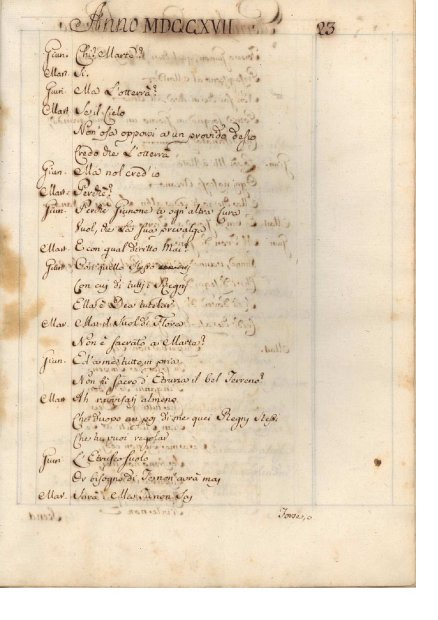 Anno MDCCXVII 23
Giun. Chi? Marte?
Mar. Si.
Giun. Ma L'otterrà?
Mar. Se il Cielo
Non osa opporsi a un provido desio
Credo che L'otterrà
Giun. Ma nol cred'io
Mar. Perchè?
Giun. Perchè Giunone ad ogni altra Cura
Vuol, che La sua prevalga
Mar. E con qual diritto Mai?
Giun. Con quello
Con cui di tutti i Regni
Ella è Dea tutelar
Mar. Ma il Suol di Flora
Non è sacrato a Marte?
Giun. Ed a me tutto in pria
Non fù sacro d'Etruria il bel Terreno?
Mar. Ah almeno
Che d'uopo an poi di me quei Regni stessi
Che tu vuoi regolar
Giun. L'Etrusco suolo
Di bisogno di Te non avrà mai
Mar. Sarà: Ma Tu non sai